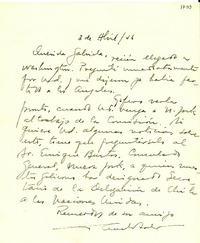 2 de Abril/46
Querida Gabriela, recién llegado a
Washington. Pregunté inmediatamente
por Ud. y me dijeron ya había par-
tido a Los Angeles.
Espero verla
pronto, cuando Ud. venga a N. York
al trabajo de la Comisión. Si
quiere Ud. algunas noticias sobre
esto, tiene que preguntárselo al
Sr. Enrique Bustos, Consulado
General Nueva York, a quien
felizmente han designado Secre-
tario de la Delegación de Chile
a las Naciones Unidas.
Recuerdos de su amigo